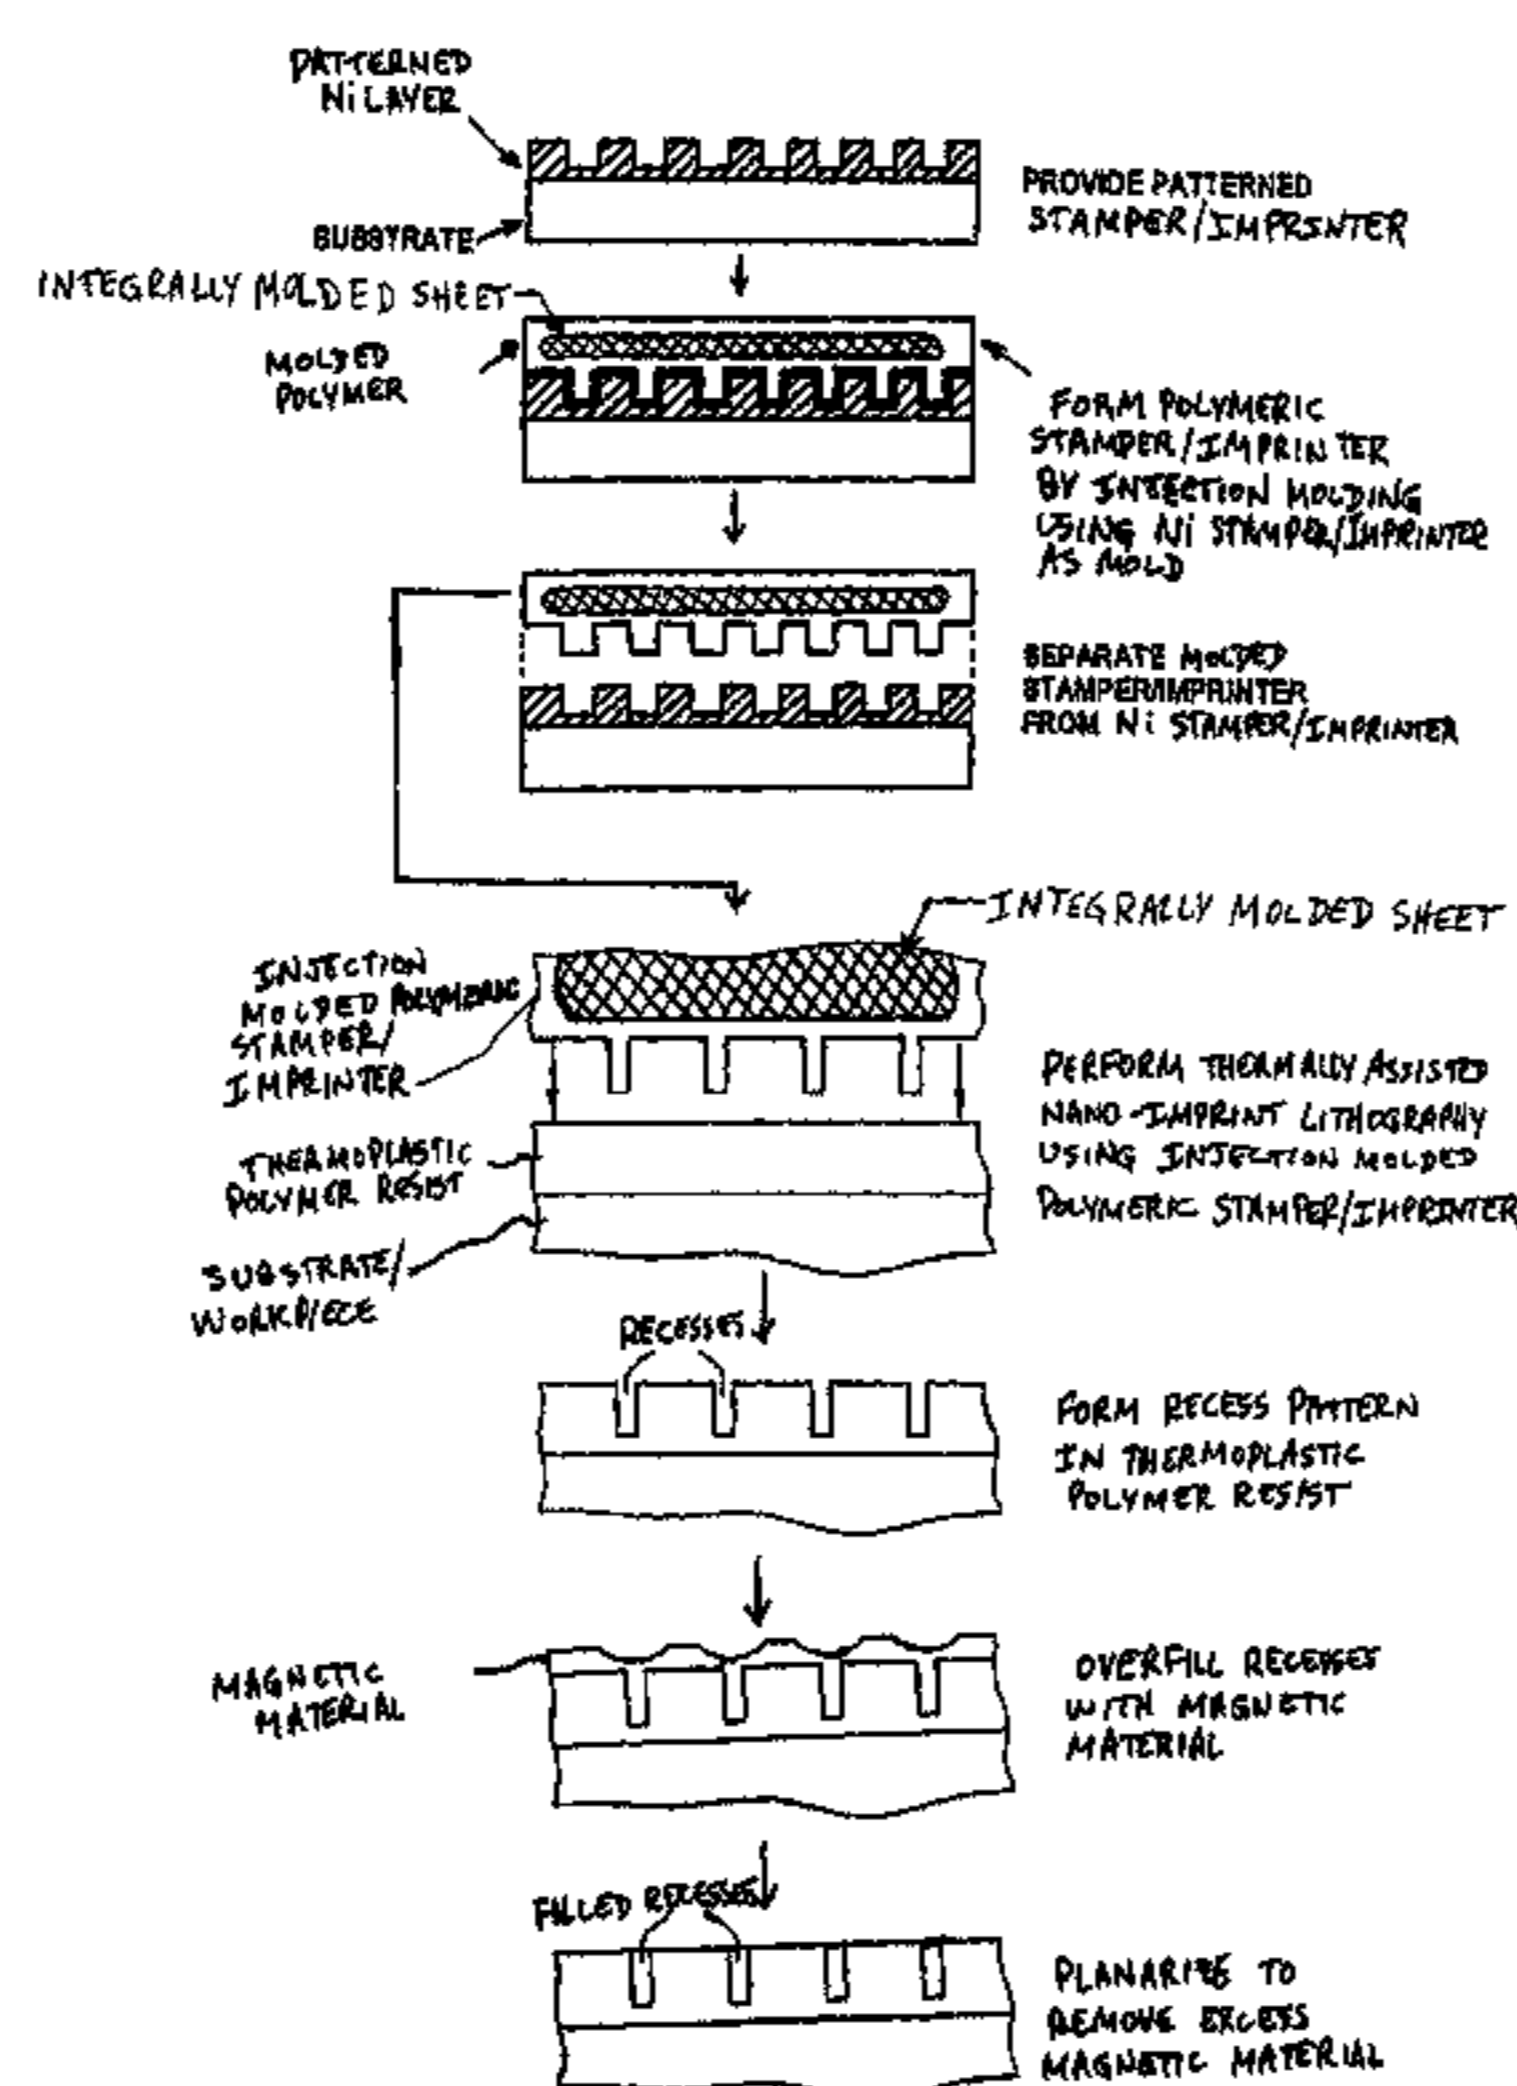 PATTERNED
Ni LAYER
PROVIDE PATTERNED
STAMPER/IMPRINTER
SUBSTRATE
INTEGRALLY MOLDED SHEET
MOLDED
POLYMER
FORM POLYMERIC
STAMPER/IMPRINTER
BY INJECTION MOLDING
USING Ni STAMPER/IMPRINTER
AS MOLD
SEPARATE MOLDED
STAMPER/IMPRINTER
FROM Ni STAMPER/IMPRINTER
INTEGRALLY MOLDED SHEET
INJECTION
MOLDED POLYMERIC
STAMPER/
IMPRINTER
PERFORM THERMALLY ASSISTED
NANO-IMPRINT LITHOGRAPHY
USING INJECTION MOLDED
POLYMERIC STAMPER/IMPRINTER
THERMOPLASTIC
POLYMER RESIST
SUBSTRATE/
WORKPIECE
RECESSES
FORM RECESS PATTERN
IN THERMOPLASTIC
POLYMER RESIST
MAGNETIC
MATERIAL
OVERFILL RECESSES
WITH MAGNETIC
MATERIAL
FILLED RECESSES
PLANARIZE TO
REMOVE EXCESS
MAGNETIC MATERIAL